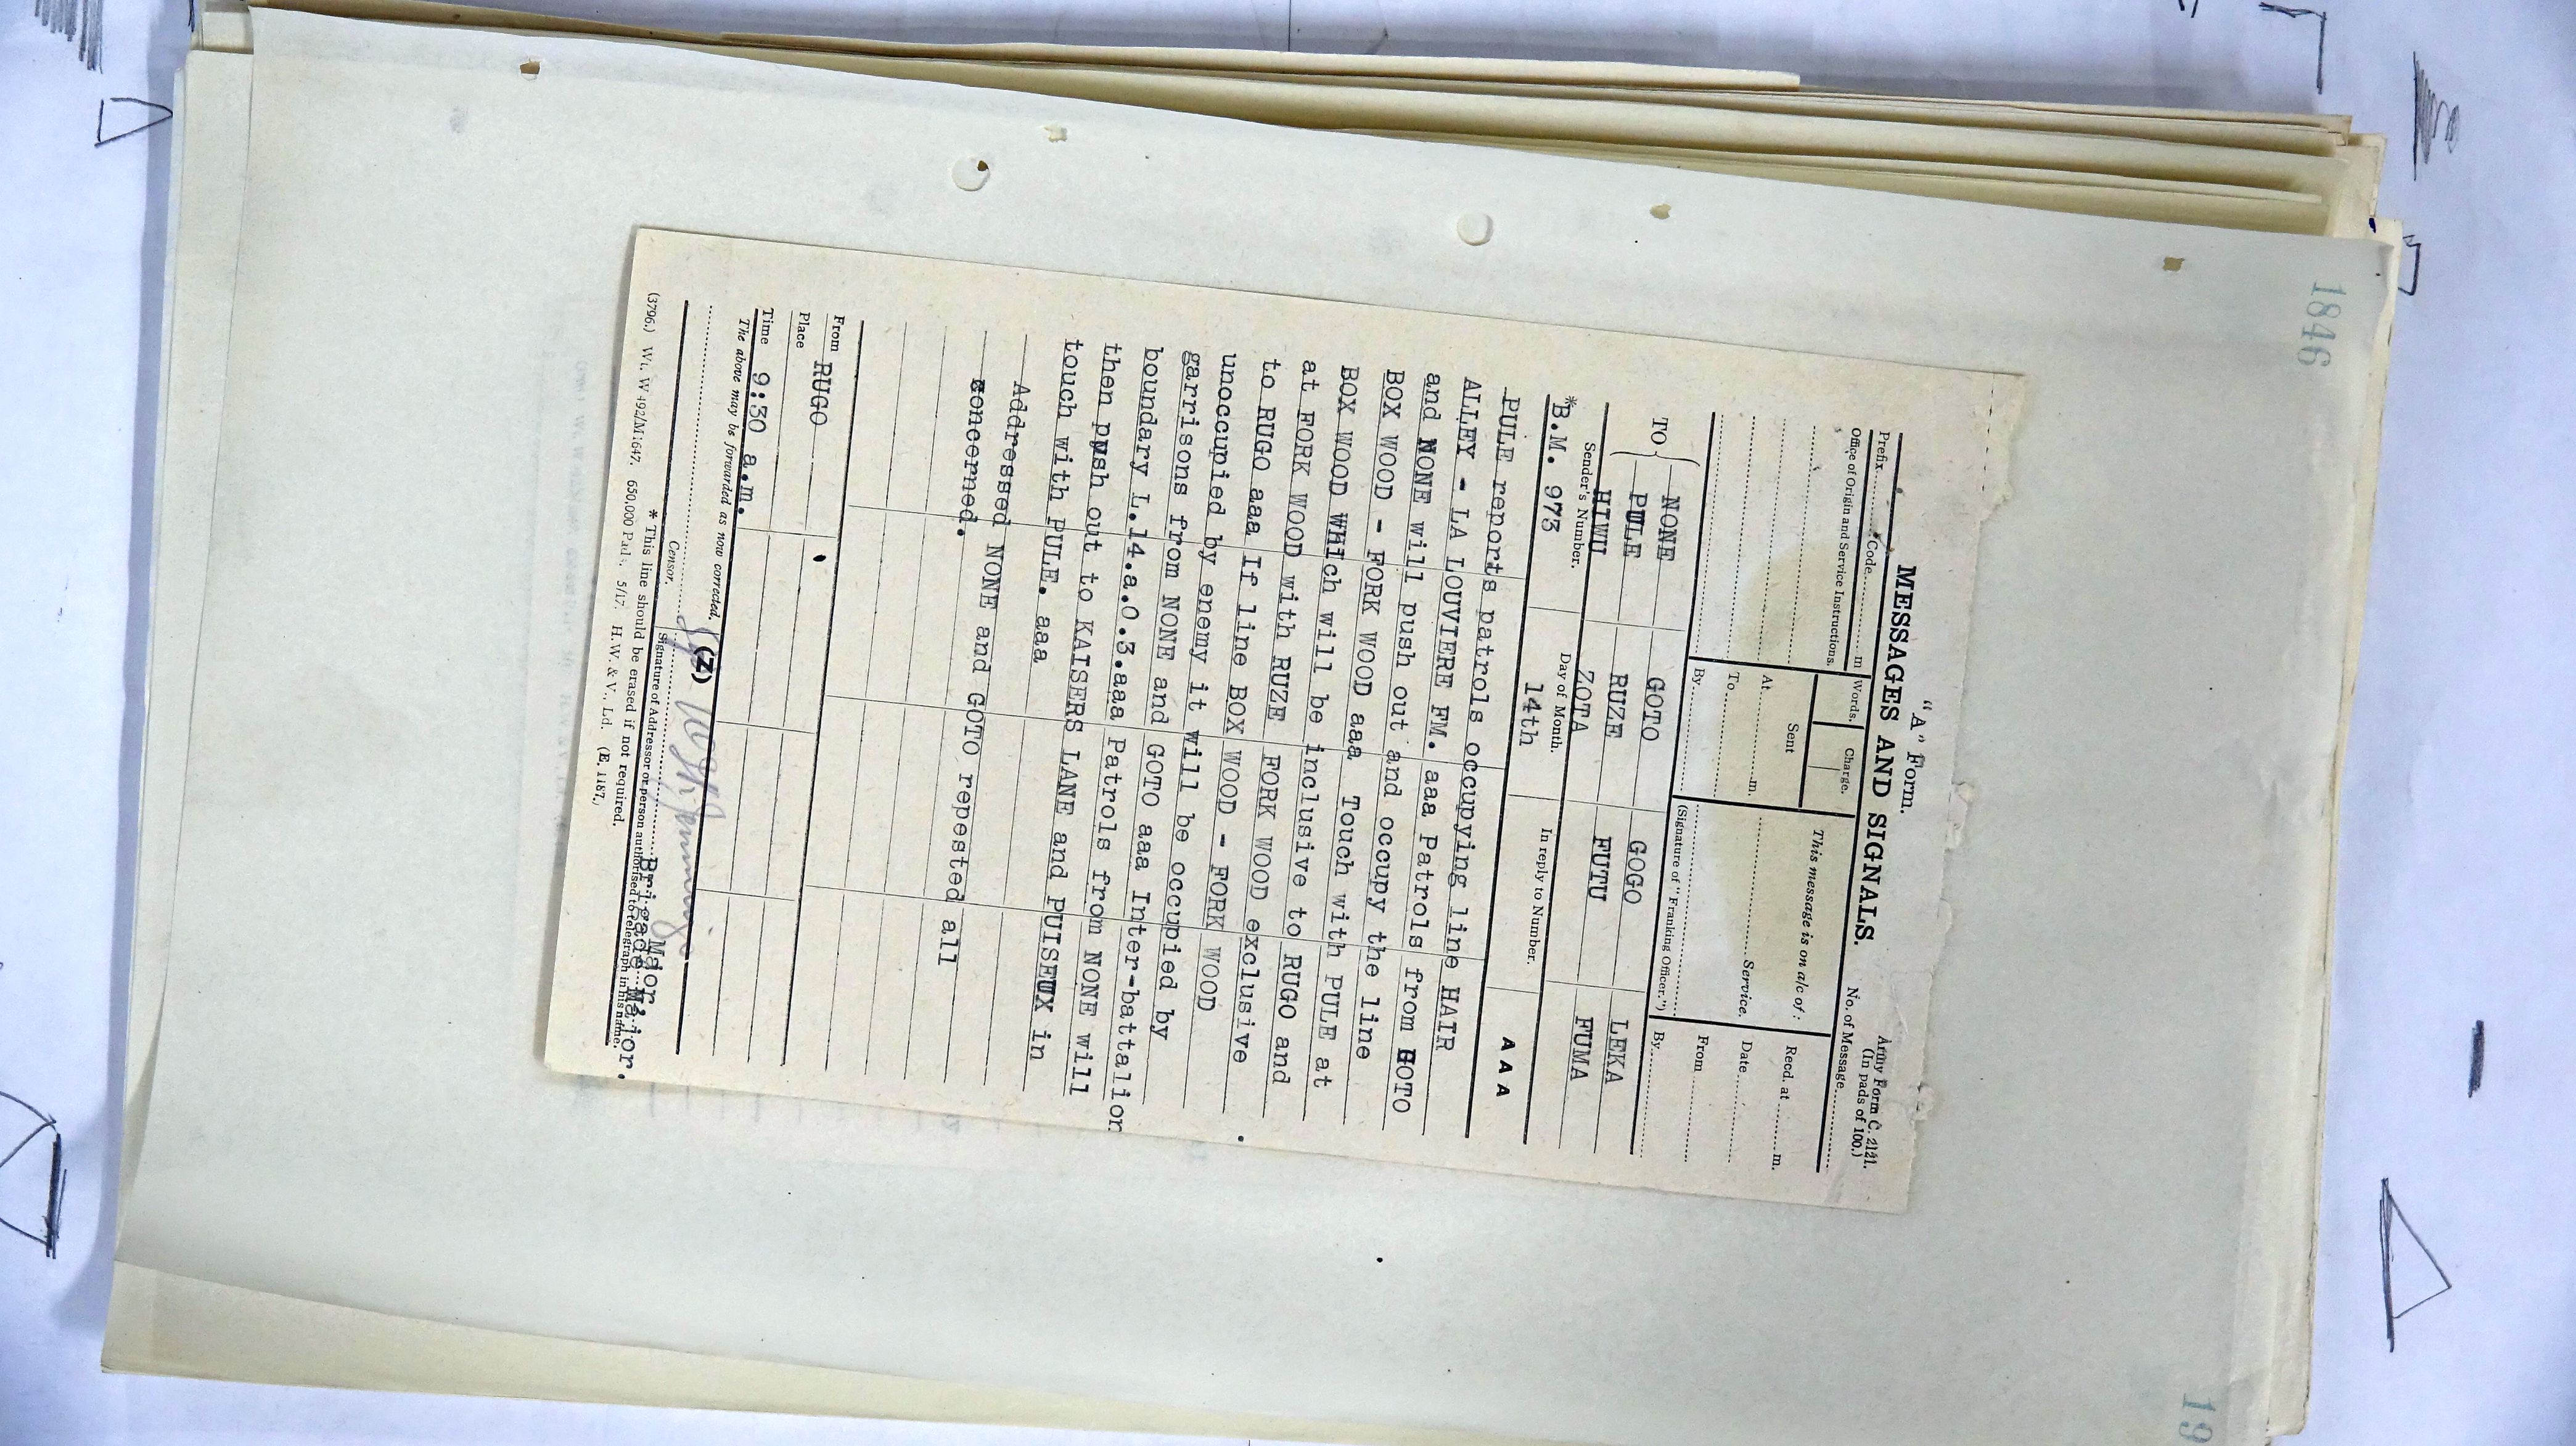 1846
"A" Form.
MESSAGES AND SIGNALS.
Army Form C. 2121.
(In pads of 100.)
No. of Message
Prefix Code m
Words. Charge.
This message is on a/c of:
Recd. at m.
Office of Origin and Service Instructions.
Sent
At m.
Service.
Date
To
From
By
(Signature of "Franking Officer.")
By
TO
NONE GOTO GOGO LEKA
PULE RUZE FUTU FUMA
HIWU ZOTA
Sender's Number. Day of Month. In reply to Number.
*B.M. 973 14th A A A
PULE reports patrols occupying line HAIR
ALLEY - LA LOUVIERE FM. aaa Patrols from GOTO
and NONE will push out and occupy the line
BOX WOOD - FORK WOOD aaa Touch with PULE at
BOX WOOD Which will be inclusive to RUGO and
at FORK WOOD with RUZE FORK WOOD exclusive
to RUGO aaa If line BOX WOOD - FORK WOOD
unoccupied by enemy it will be occupied by
garrisons from NONE and GOTO aaa Inter-battalion
boundary L.14.a.0.3.aaa Patrols from NONE will
then push out to KAISERS LANE and PUISEUX in
touch with PULE. aaa
Addressed NONE and GOTO repested all
concerned.
From RUGO
Place
Time 9:30 a.m.
The above may be forwarded as now corrected. (Z)
Major
Censor. Signature of Addressor or person authorised to telegraph in his name.
Brigade Major.
* This line should be erased if not required.
(3796.) Wt. W 492/M1647. 650,000 Pads. 5/17. H.W. & V., Ld. (E. 1187.)
19